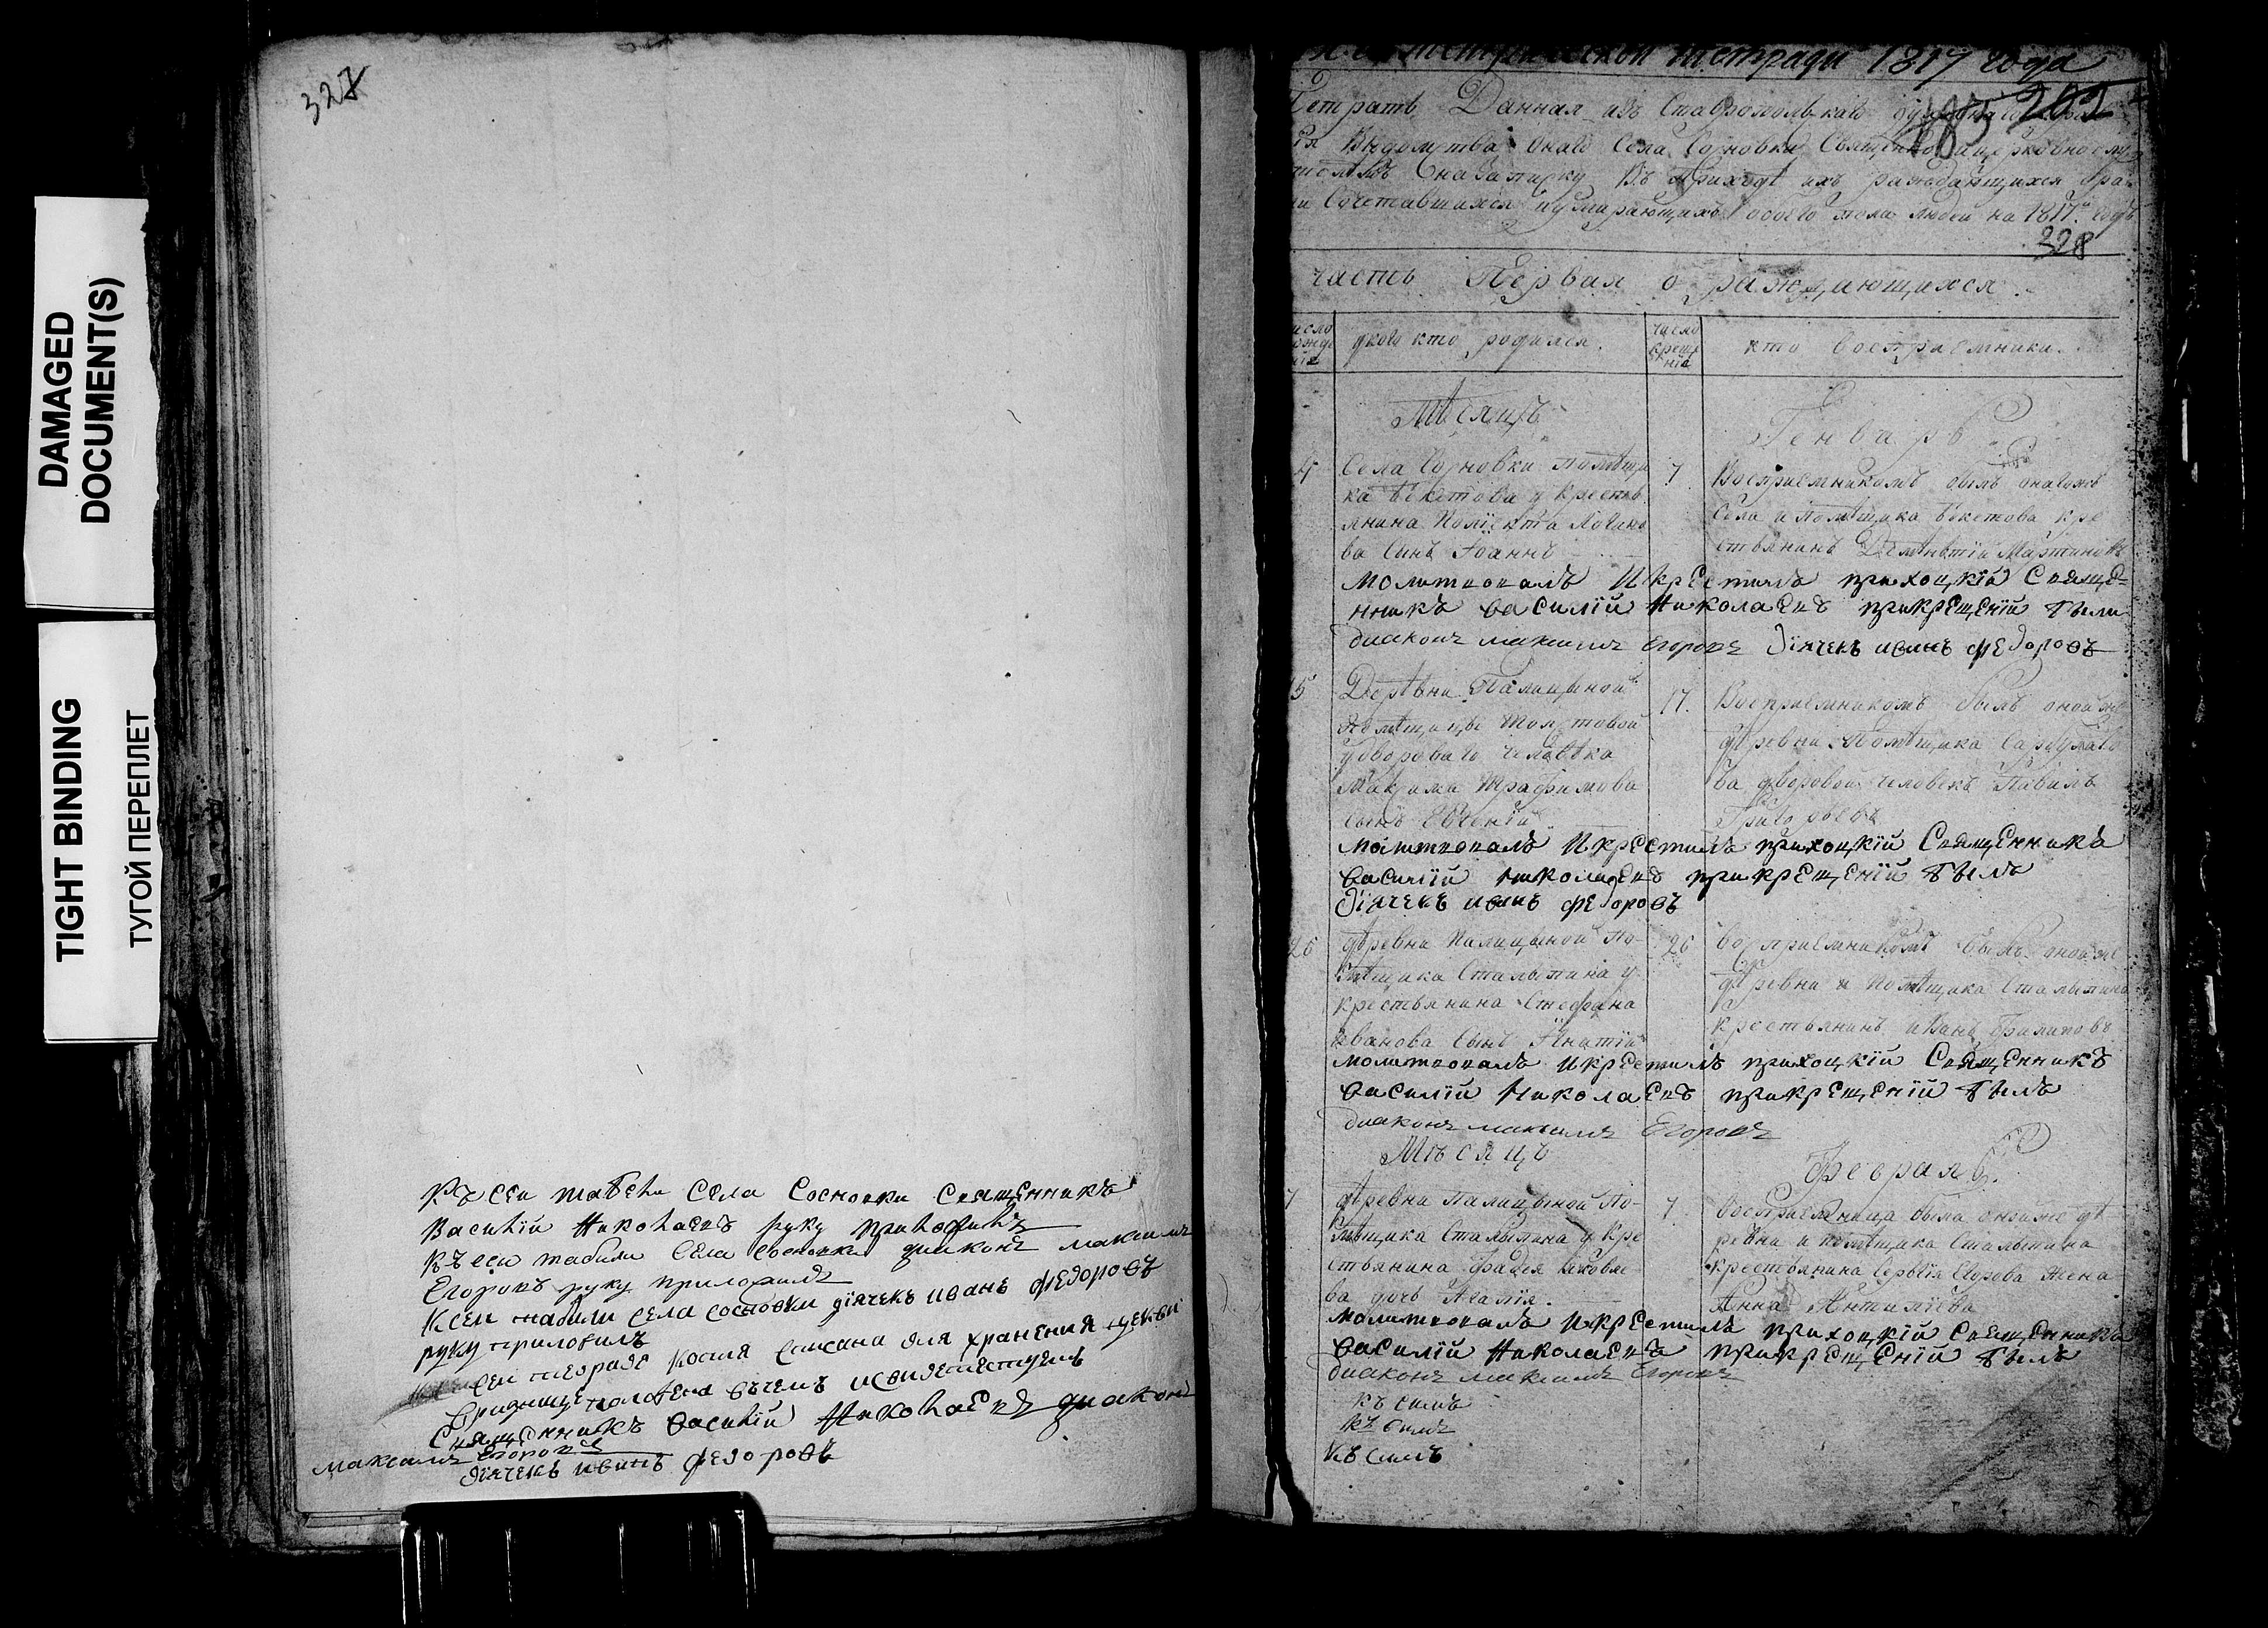 DAMAGED
DOCUMENT(S)
TIGHT BINDING
ТУГОЙ ПЕРЕПЛЕТ
327
Къ сеи табели Села Сосновки Священникъ
Василїй Николаевъ руку приложилъ
Къ сеи табели Села Сосновки диаконъ максимъ
Егоровъ руку приложилъ
К сеи табили села сосновки дїячекъ иванъ федоровъ
руку приложилъ
Сеи тетради копия списана для хранения
положена въчемъ исвидетелствуемъ
Священникъ Василїй Николаевъ диаконъ
максимъ Егоровъ
дїячекъ иванъ федоровъ
тетради 1817 года
202
Тетрать Данная изъ Ставропольскаго духовнаго
Ведомства онаго Села Сосновки Священно ицерковнослу
назаписку въ приходѣ ихъ раждающихся бра
сочетавшихся иумирающихъ обоего пола людей на 1817 годъ
328
часть Первая о раждающихся
укого кто родился.
число
креще
нїя
кто восприемники.
Мѣсяцъ
Генварь
4
Села Сосновки помѣщи
ка Бекетова у кресть
янина Полїекта Логино
ва Сынъ Іоаннъ
7
Восприемникомъ былъ онагожъ
Села и помѣщика Бекетова кре
стьянинъ Деменьтїй Мартиновъ
молитвовалъ Икрестилъ приходкїй Свяще=
нникъ василїй Николаевъ прикрещенїй были
диаконъ максимъ Егоровъ дїячекъ иванъ федоровъ
15
Деревни Палицыной
Помѣщицы Толстовой
удвороваго человѣка
Максима Трафимова
сынъ Евгенїй
17.
Восприемникомъ былъ оной же
деревни Помѣщика
ва дворовой человекъ Павилъ
Григорьевъ
молитвовалъ Икрестилъ приходкїй Священникъ
василїй николаевъ прикрещенїй былъ
дїячекъ иванъ федоровъ
25
деревни Палицыной По-
мѣщика Сталыпина у
крестьянина Стефана
Иванова Сынъ Їгнатїй
26
восприемникомъ былъ оной же
деревни и Помѣщика Сталыпина
крестьянинъ Иванъ Филиповъ
молитвовалъ Икрестилъ приходкїй Священникъ
василїй Николаевъ прикрещенїй былъ
диаконъ максимъ Егоровъ
Мѣсяцъ
Февраль.
7
деревни Палицыной По-
мѣщика Сталыпина у кре
стьянина Фадея Яковле
ва дочь Агафїя.
7
восприемница была оной же де
ревни и помѣщика Сталыпина
крестьянина Сергѣя Егорова жена
Анна Антипїева
молитвовалъ Икрестилъ приходкїй Священникъ
василїй Николаевъ прикрещенїй былъ
диаконъ максимъ Егоровъ
къ симъ
къ симъ
къ симъ